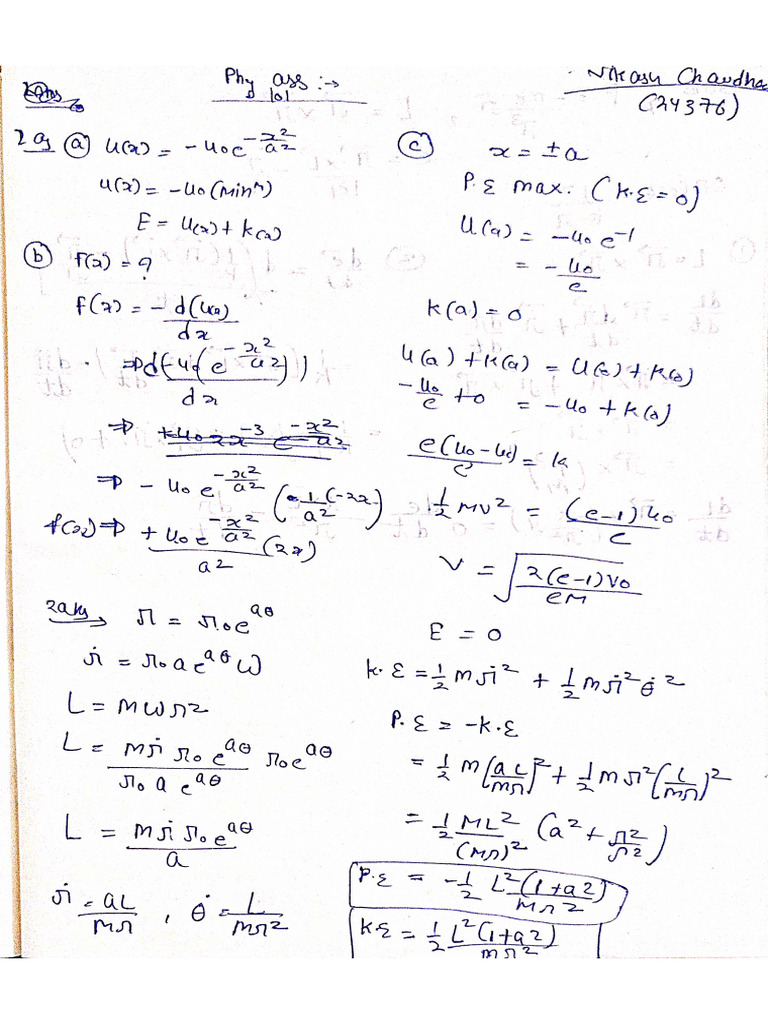 Phy ass :→
101
Nikash Chaudha
(24376)
1 Ans (a) u(x) = -u₀e^(-x²/a²)
u(x) = -u₀ (minᵐ)
E = u(x) + k(x)
(b) f(x) = ?
f(x) = -d(u(x))/dx
⇒ d(-u₀(e^(-x²/a²)))/dx
⇒ -u₀e^(-x²/a²) (-1/a² (-2x)
f(x) ⇒ +u₀e^(-x²/a²)/a² (2x)
(c) x = ±a
P.E max. (K.E = 0)
U(a) = -u₀e⁻¹
= -u₀/e
k(a) = 0
u(a) + k(a) = u(0) + k(0)
-u₀/e + 0 = -u₀ + k(0)
e(u₀-u₀)/e = k
1/2 mv² = (e-1)u₀/e
V = √(2(e-1)v₀/eM)
2 ans → r = r₀e^(aθ)
ṙ = r₀ae^(aθ) ω
L = mωr²
L = mṙ r₀e^(aθ)/r₀ a e^(aθ) r₀e^(aθ)
L = mṙ r₀e^(aθ)/a
ṙ = aL/mr , θ̇ = L/mr²
E = 0
K.E = 1/2 mṙ² + 1/2 mṙ²θ̇²
P.E = -K.E
= 1/2 m(aL/mr)² + 1/2 mr²(L/mr)²
= 1/2 ML²/(mr)² (a² + r²/r²)
P.E = -1/2 L²(1+a²)/mr²
K.E = 1/2 L²(1+a²)/mr²